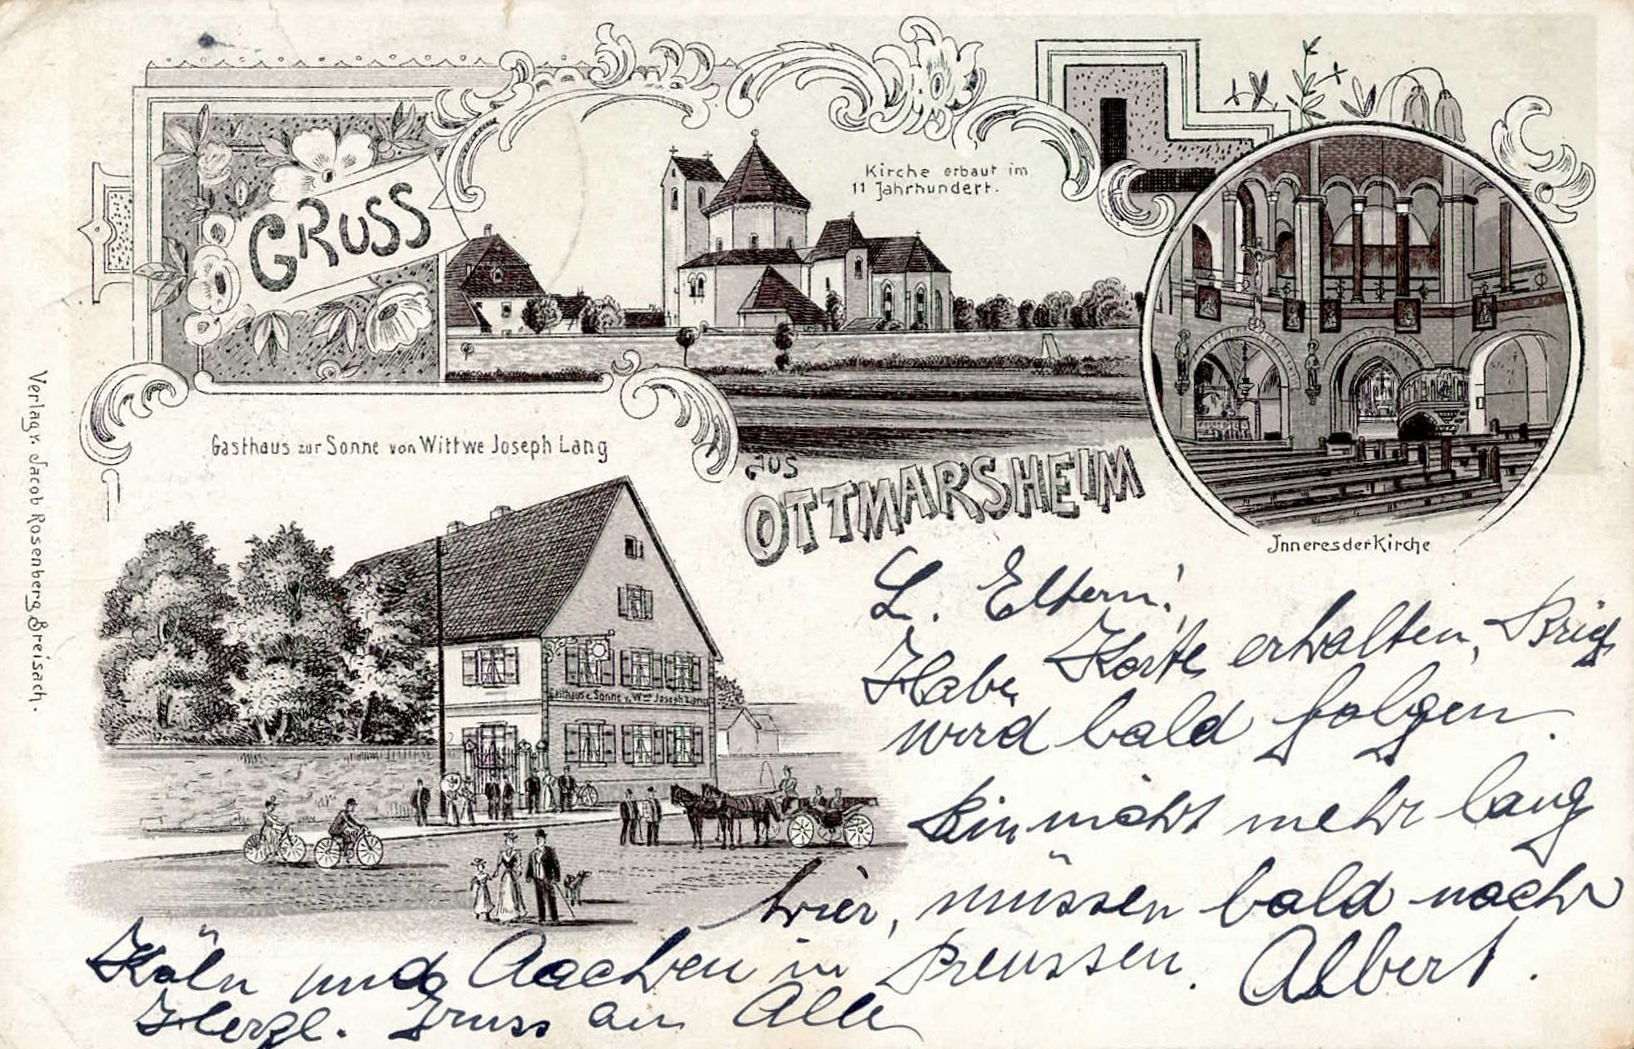 GRUSS
Kirche erbaut im
11 Jahrhundert.
Gasthaus zur Sonne von Wittwe Joseph Lang
aus
OTTMARSHEIM
Jnneres der Kirche
Gasthaus z. Sonne v. Wwe Joseph Lang
Verlag v. Jacob Rosenberg Breisach.
L. Eltern!
Habe Karte erhalten, Brief
wird bald folgen.
Bin nicht mehr lang
hier, müssen bald nach
Köln und Aachen in Preussen. Albert.
Herzl. Gruss an Alle